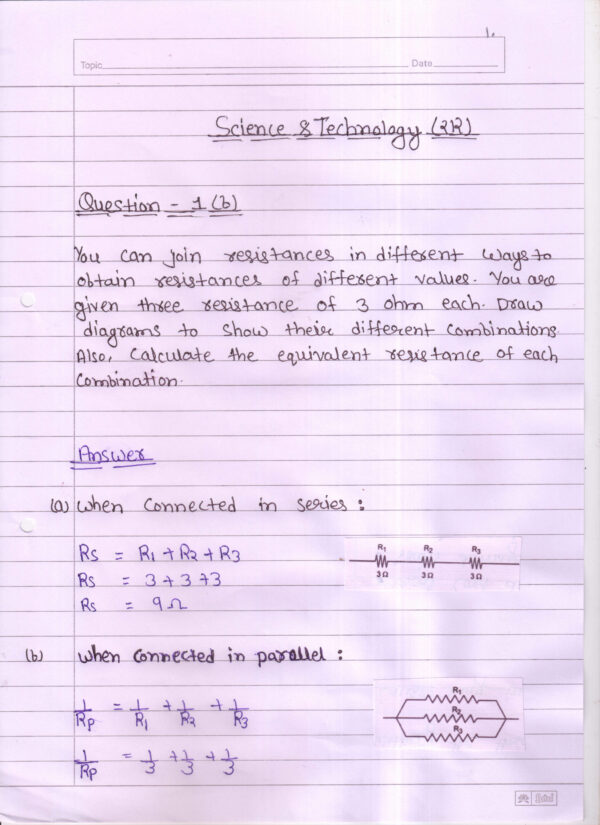 1.
Topic Date
Science & Technology (212)
Question - 1 (b)
You can join resistances in different ways to
obtain resistances of different values. You are
given three resistance of 3 ohm each. Draw
diagrams to show their different combinations.
Also, Calculate the equivalent resistance of each
Combination.
Answer
(a) when Connected in series :
Rs = R1 + R2 + R3
R1 R2 R3
Rs = 3 + 3 + 3
3 Ω 3 Ω 3 Ω
Rs = 9 Ω
(b) when Connected in parallel :
1/Rp = 1/R1 + 1/R2 + 1/R3
R1
R2
R3
1/Rp = 1/3 + 1/3 + 1/3